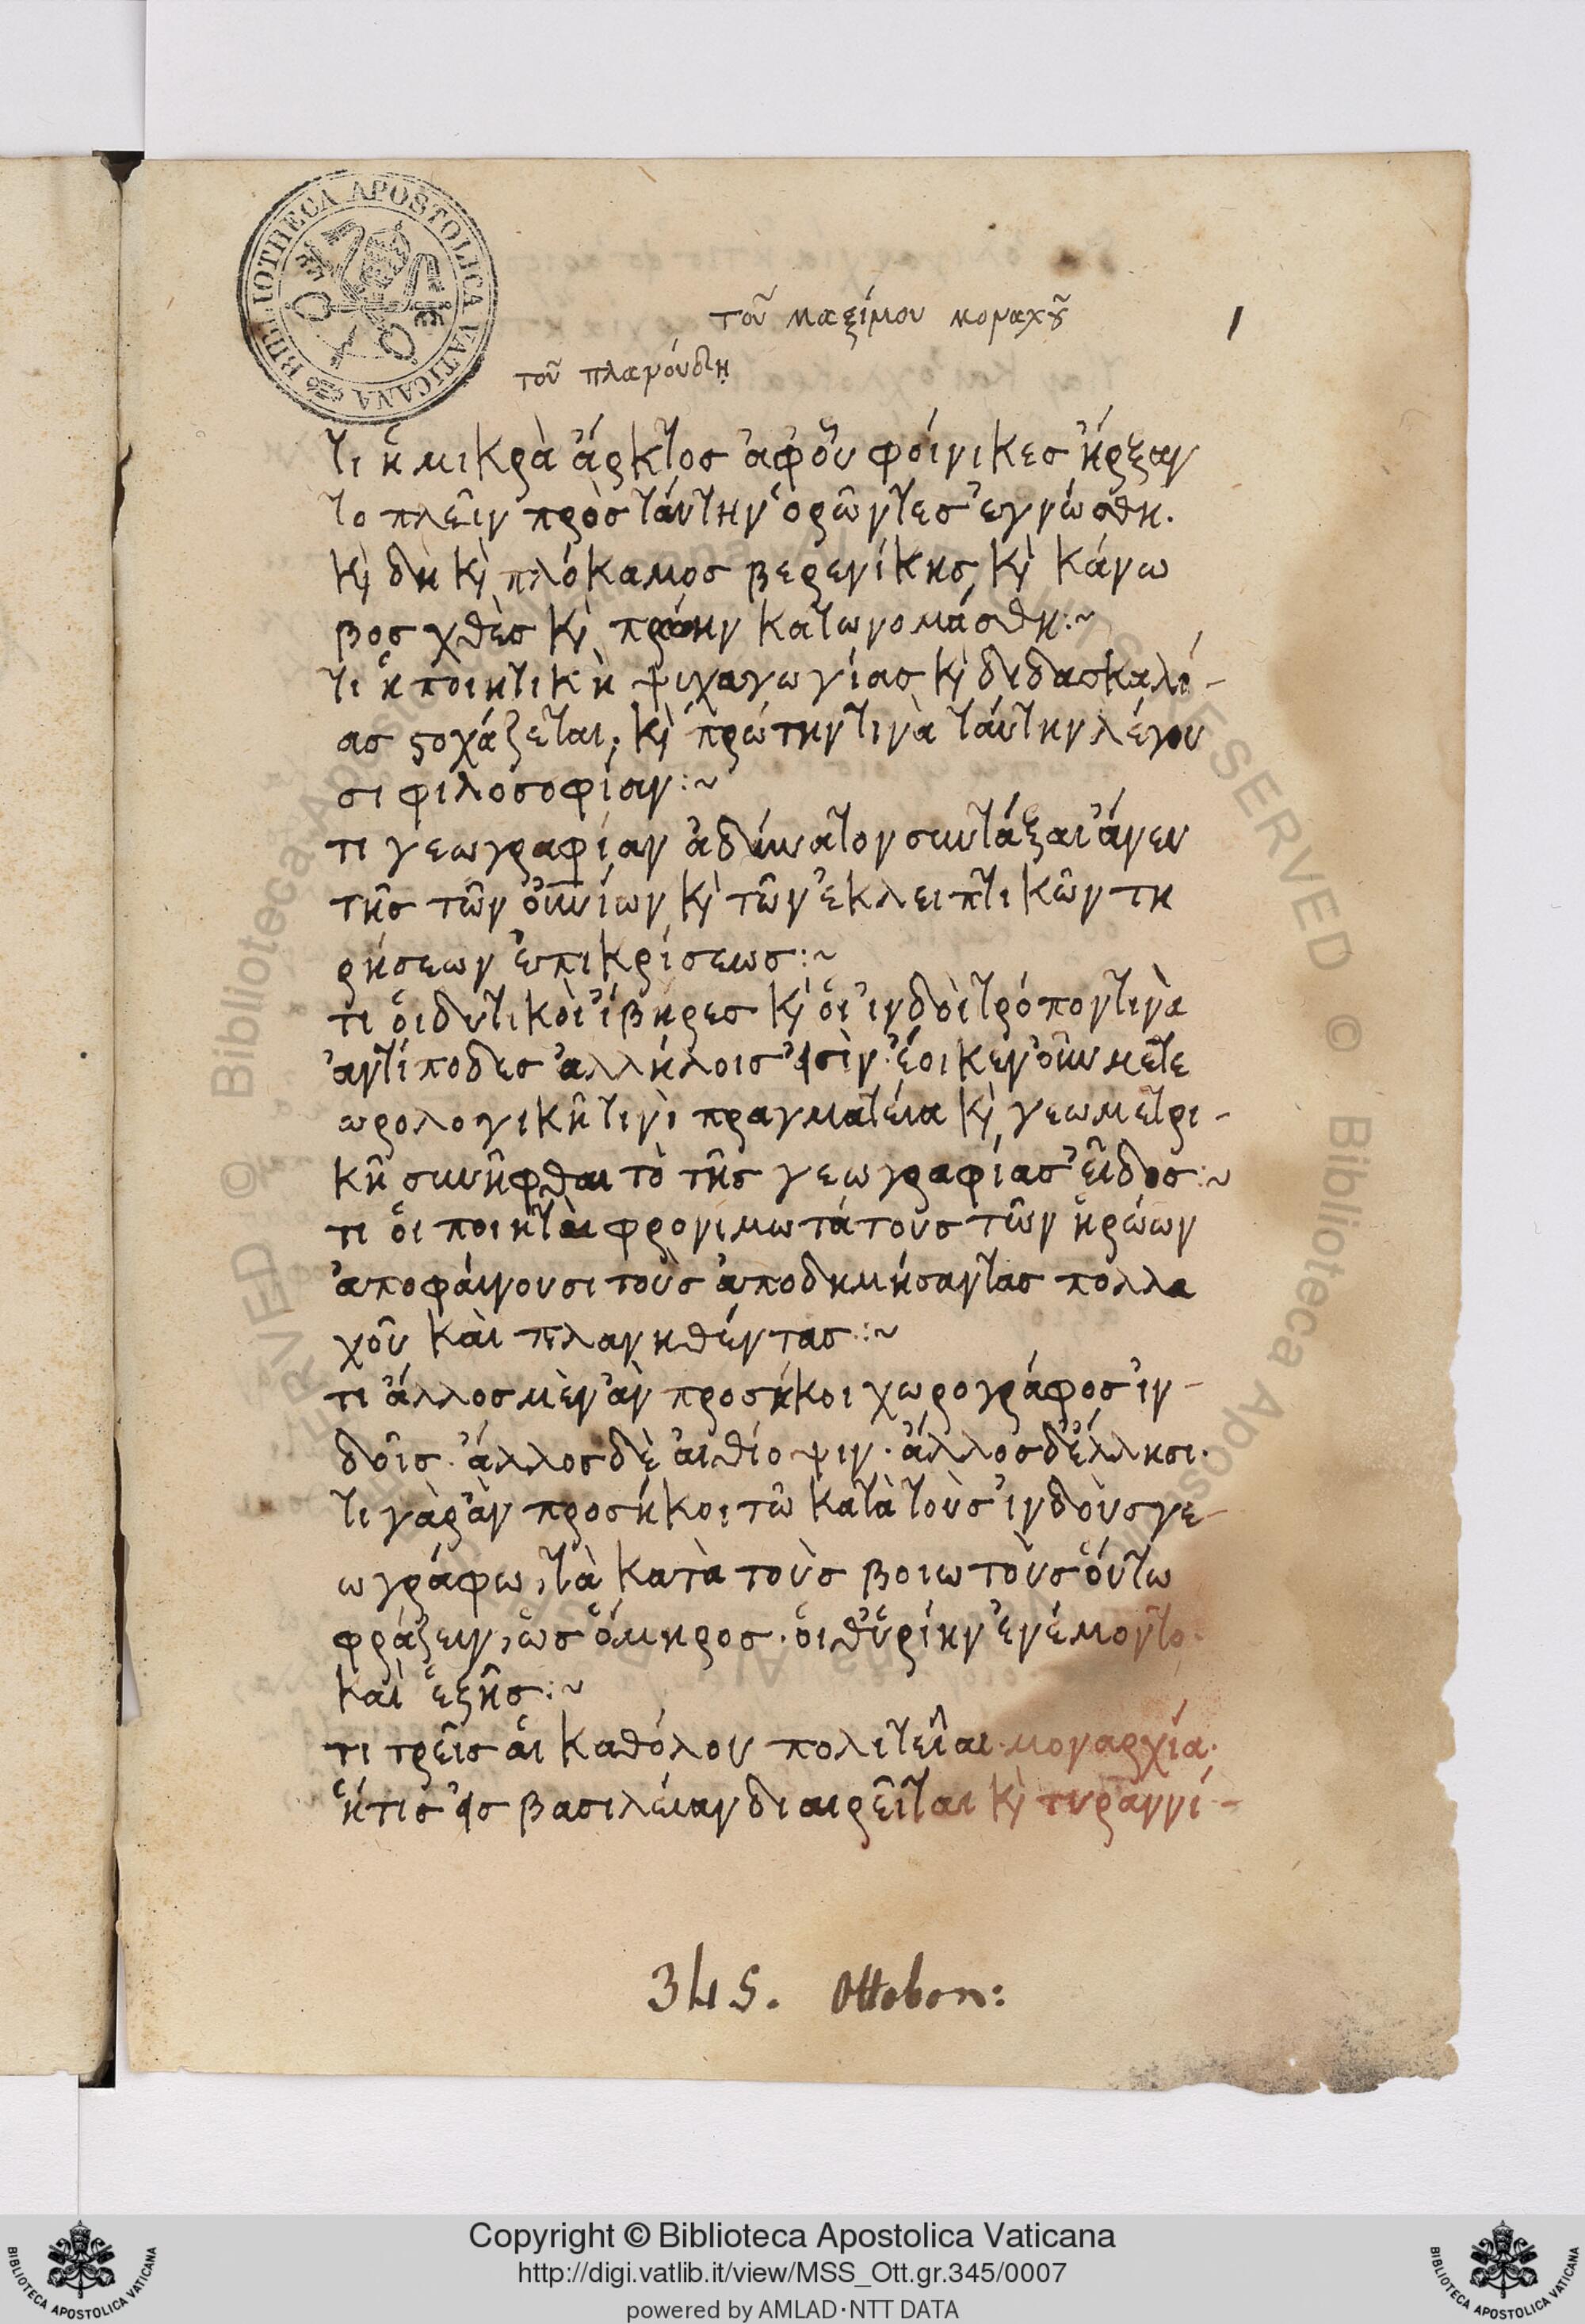 BIBLIOTHECA APOSTOLICA VATICANA
1
τοῦ μαξίμου μοναχοῦ
τοῦ πλανούδη
τι ἡ μικρὰ ἄρκτος ἀφ' οὗ φοίνικες ἤρξαν
το πλεῖν πρὸς ταύτην ὁρῶντες ἐγνώσθη.
κὶ δὴ κὶ πλόκαμος βερενίκης, κὶ κάνω
βος χθὲς κὶ πρώην κατωνομάσθη:~
τι ἡ ποιητικὴ ψυχαγωγίας κὶ διδασκαλί-
ας στοχάζεται· κὶ πρώτην τινὰ ταύτην λέγου
σι φιλοσοφίαν:~
τι γεωγραφίαν ἀδύνατον συντάξαι ἄνευ
τῆς τῶν οὐνίων κὶ τῶν ἐκλειπτικῶν τη
ρήσεων ἐπικρίσεως:~
τι οἱ δυτικοὶ ἴβηρες κὶ οἱ ἰνδοὶ τρόπον τινὰ
ἀντίποδες ἀλλήλοις εἰσὶν· ἔοικεν οὖν μετε
ωρολογικῆ τινὶ πραγματεία κὶ γεωμετρι-
κῆ συνῆφθαι τὸ τῆς γεωγραφίας εἶδος:~
τι οἱ ποιηταὶ φρονιμωτάτους τῶν ἡρώων
ἀποφαίνουσι τοὺς ἀποδημήσαντας πολλα
χοῦ καὶ πλανηθέντας:~
τι ἄλλος μὲν ἂν προσήκοι χωρογράφος ἰν-
δοῖς· ἄλλος δὲ αἰθίοψιν· ἄλλος δ' ἕλλησι·
τι γὰρ ἂν προσήκοι τῶ κατὰ τοὺς ἰνδοὺς γε-
ωγράφω, τὰ κατὰ τοὺς βοιωτοὺς οὕτω
φράζειν, ὡς ὅμηρος· οἵ θ' ὑρίην ἐνέμοντο·
καὶ ἑξῆς:~
τι τρεῖς αἱ καθόλου πολιτεῖαι· μοναρχία·
ἥτις εἰς βασιλείαν διαιρεῖται κὶ τυραννί-
345. Ottobon:
© Biblioteca Apostolica Vaticana
Copyright © Biblioteca Apostolica Vaticana
http://digi.vatlib.it/view/MSS_Ott.gr.345/0007
powered by AMLAD·NTT DATA
BIBLIOTECA APOSTOLICA VATICANA
BIBLIOTECA APOSTOLICA VATICANA